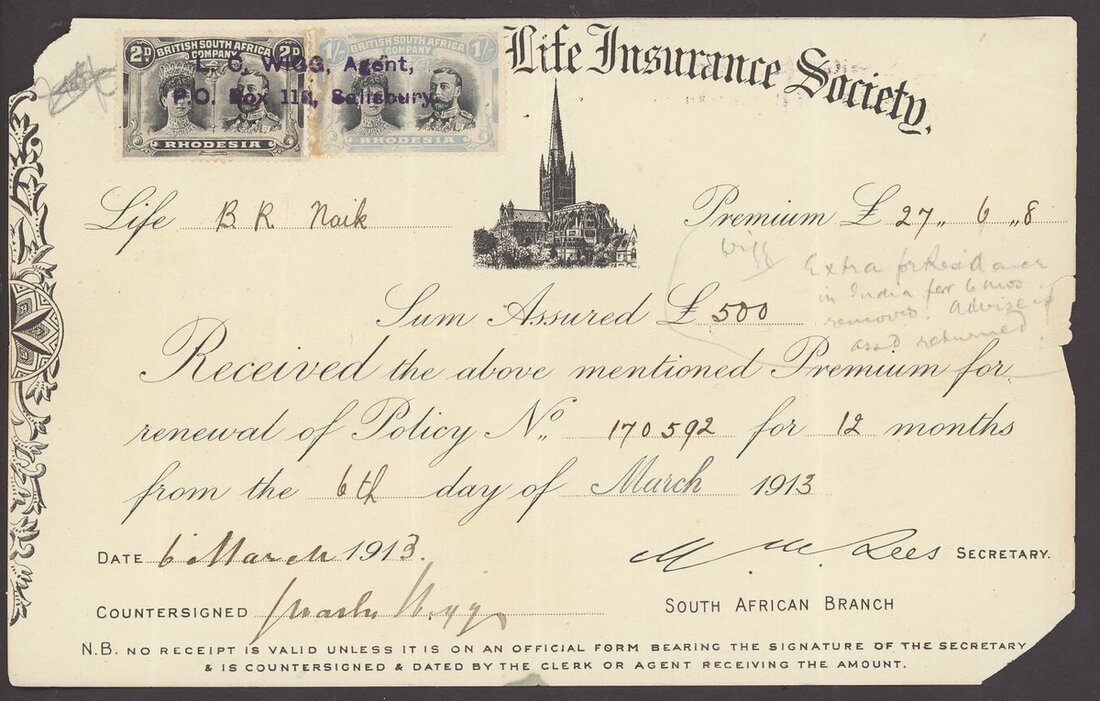 2D. BRITISH SOUTH AFRICA COMPANY 2D.
RHODESIA
1/- BRITISH SOUTH AFRICA COMPANY 1/-
RHODESIA
L. C. WIGG, Agent,
P.O. Box 118, Salisbury.
Life Insurance Society.
Life B R Naik
Premium £ 27 " 6 " 8
Wigg
Extra for Residence
in India for 6 mos
removed. Advise if
assd returned.
Sum Assured £ 500
Received the above mentioned Premium for
renewal of Policy No. 170592 for 12 months
from the 6th day of March 1913
DATE 6 March 1913.
M. M. Lees SECRETARY.
COUNTERSIGNED Wigg
SOUTH AFRICAN BRANCH
N.B. NO RECEIPT IS VALID UNLESS IT IS ON AN OFFICIAL FORM BEARING THE SIGNATURE OF THE SECRETARY
& IS COUNTERSIGNED & DATED BY THE CLERK OR AGENT RECEIVING THE AMOUNT.